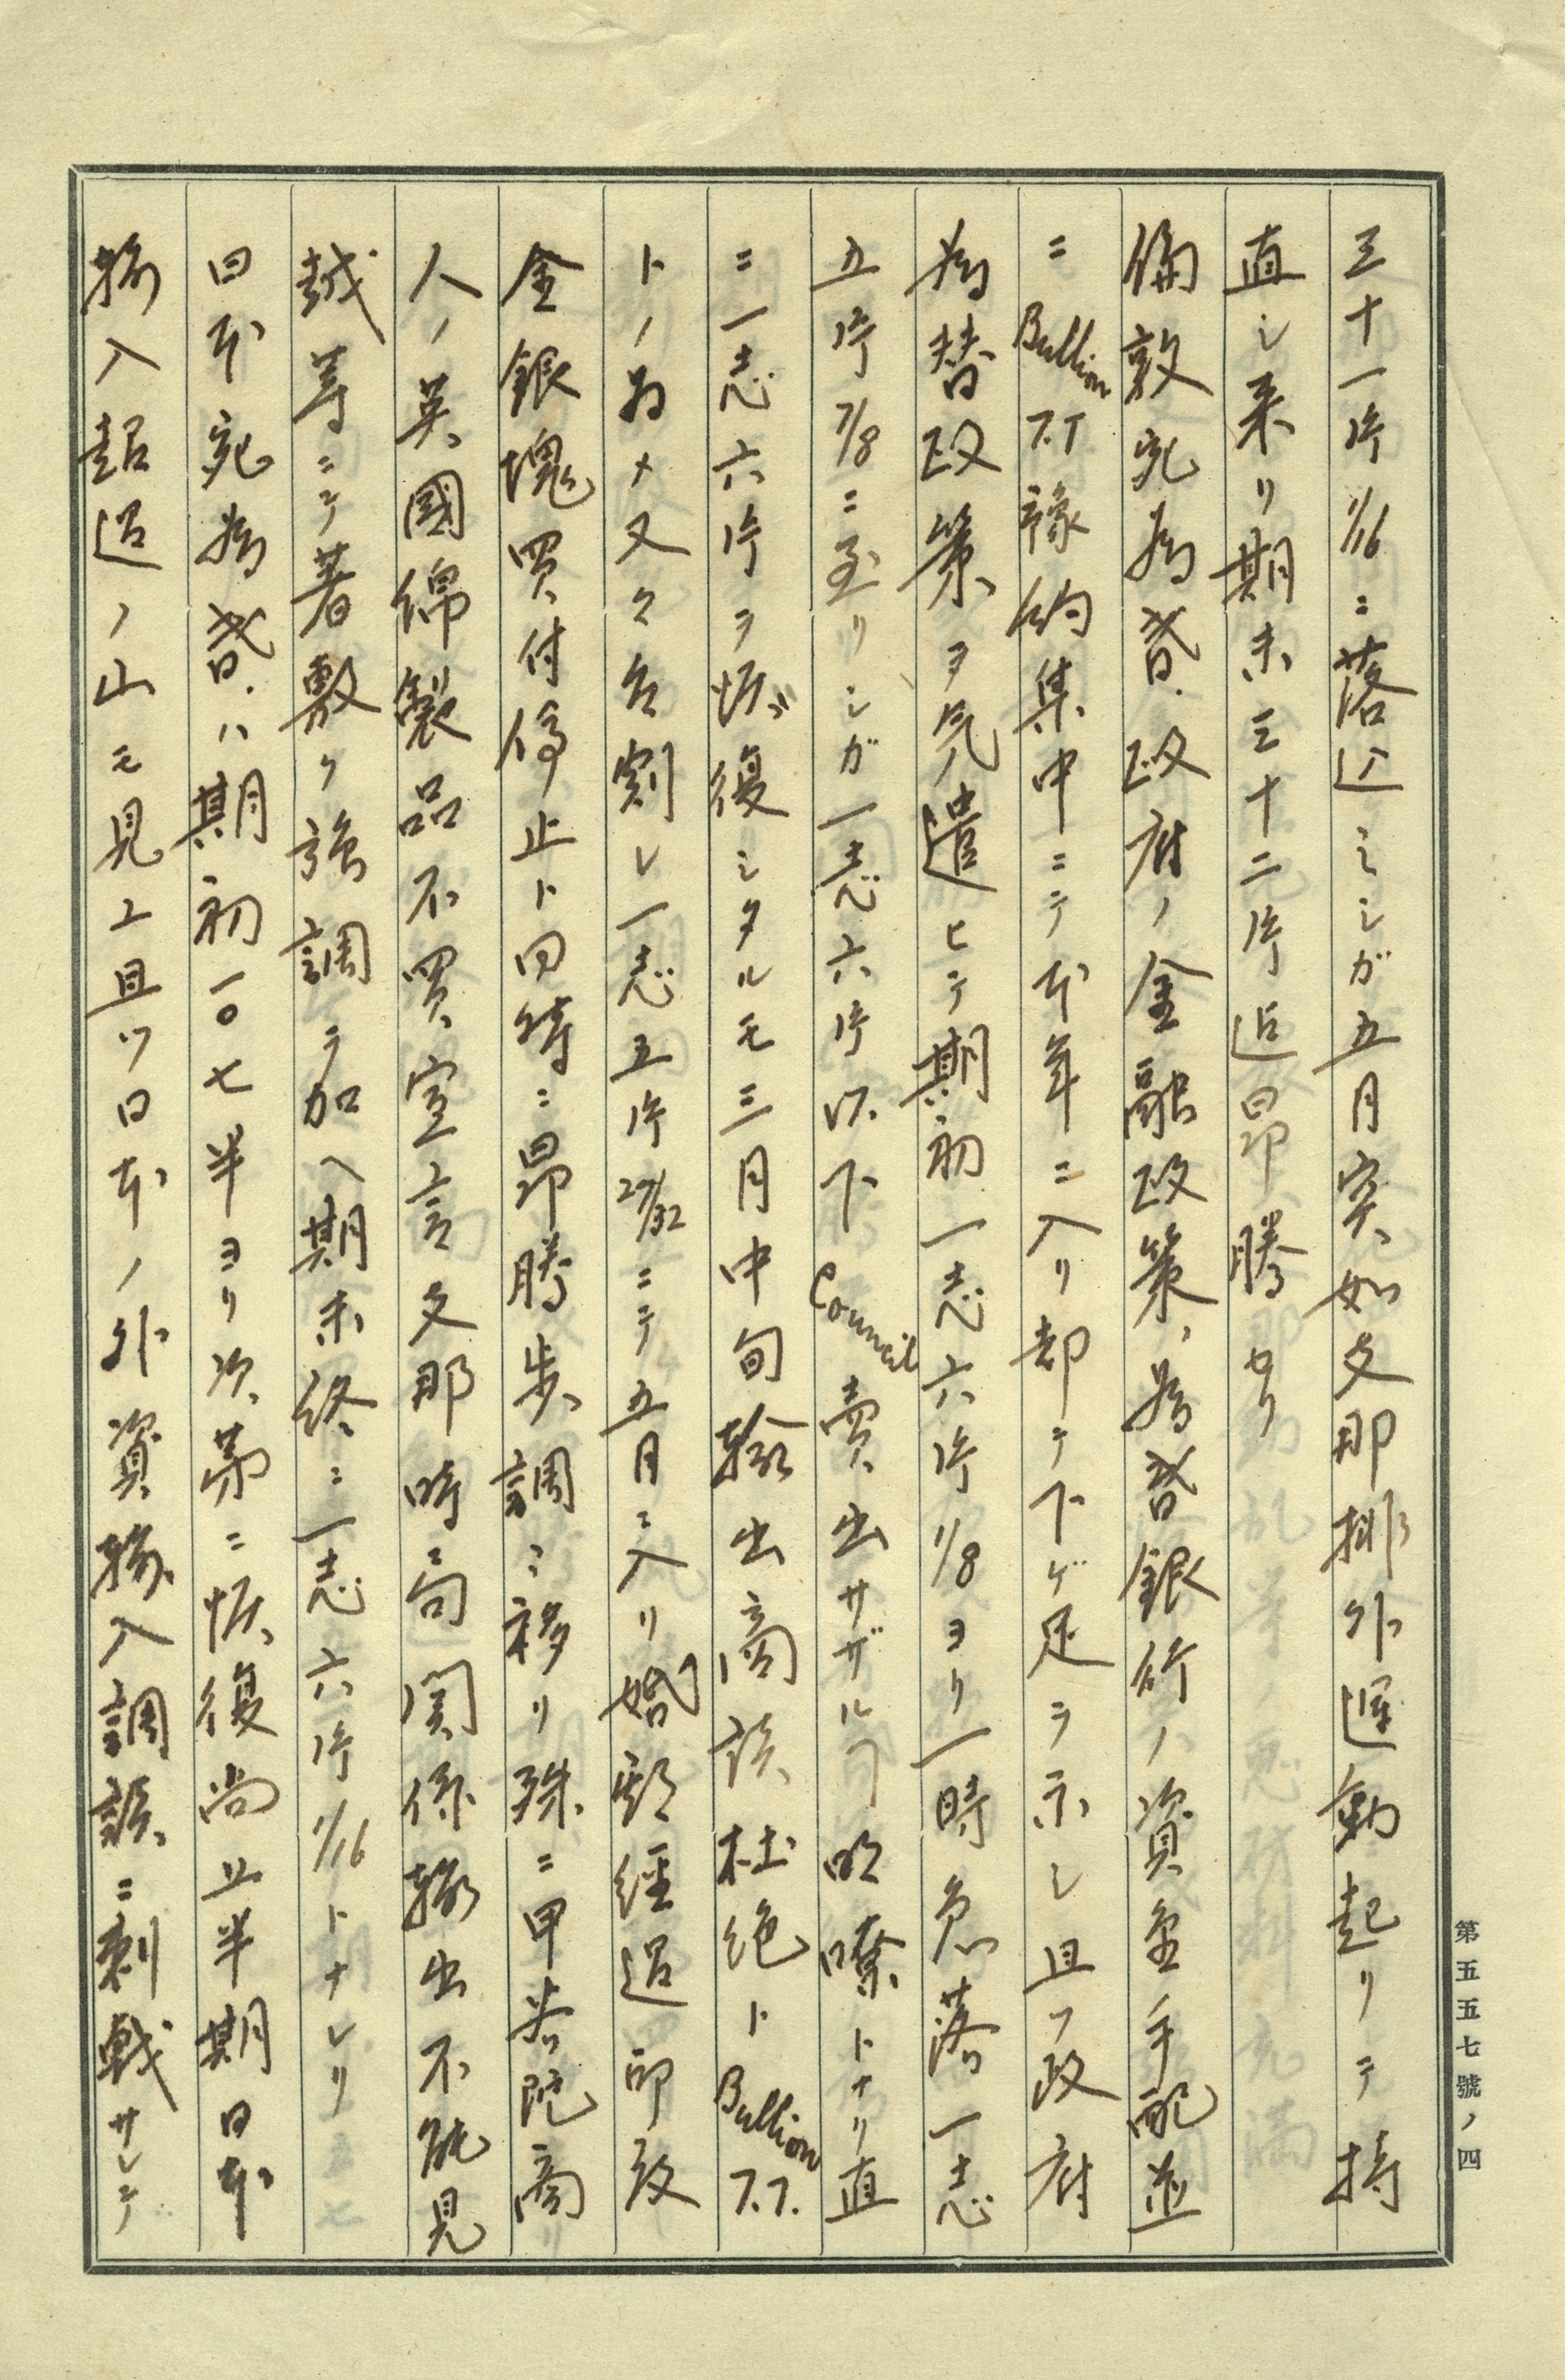 三十一片1/16ニ落込ミシガ五月突如支那排外運動起リテ持
直シ来リ期末三十二片迄昂騰セリ
倫敦宛為替、政府ノ金融政策、為替銀行ノ資金手配並
ニBullion T.T予約集中ニテ本年ニ入リ却テ下ゲ足ヲ示シ且フ政府
為替政策ヲ気遣ヒテ期初一志六片1/8ヨリ一時急落一志
五片7/8ニ至リシガ一志六片以下Council賣出サザルヿ明瞭トナリ直
ニ一志六片ヲ恢復シタルモ三月中旬輸出商談杜絶トBullion T.T.
トノ為メ又々台割レ一志五片27/32ニテ五月ニ入リ婚期経過印政
金銀塊買付停止ト同時ニ昂騰歩調ニ移リ殊ニ甲谷陀商
人ノ英國綿製品不買宣言支那時局関係輸出不能見
越等ニテ著敷ク強調ヲ加ヘ期末終ニ一志六片1/16トナレリ
日本宛為替ハ期初一〇七半ヨリ次第ニ恢復尚上半期日本
輸入超過ノ山モ見エ且ツ日本ノ外資輸入調談ニ刺戟サレテ
第五五七號ノ四